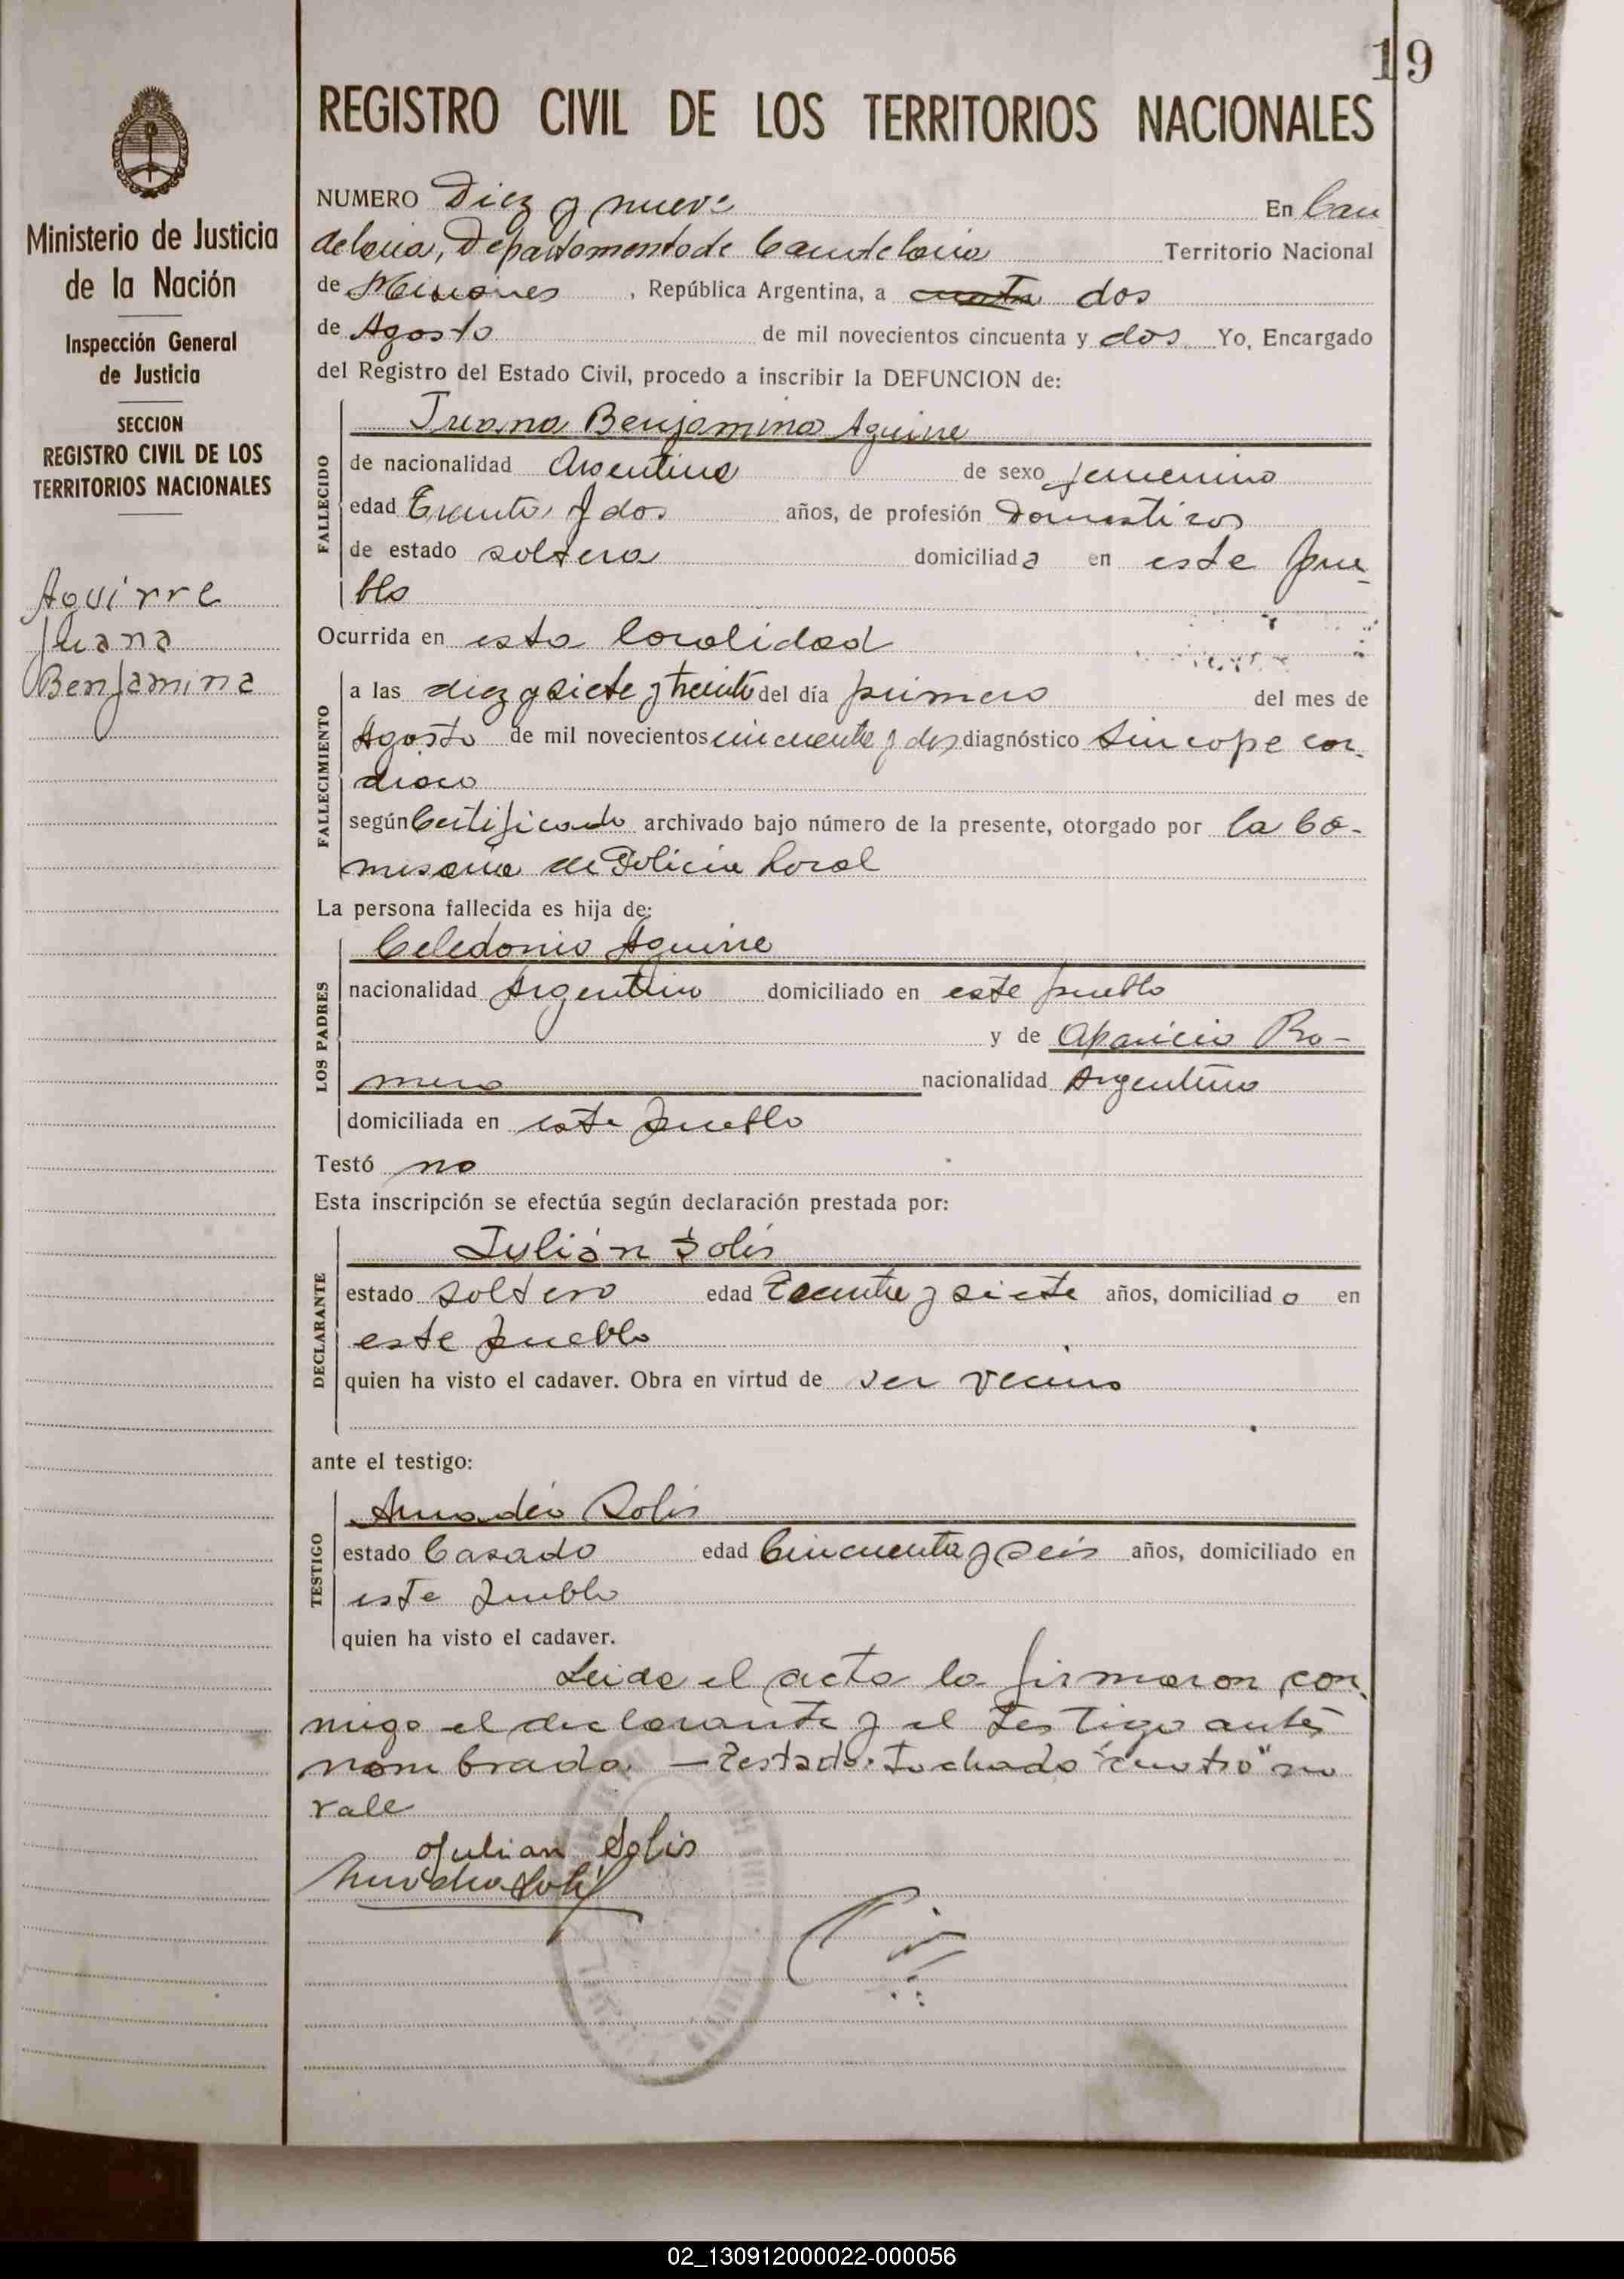 19
REGISTRO CIVIL DE LOS TERRITORIOS NACIONALES
Ministerio de Justicia
de la Nación
Inspección General
de Justicia
SECCION
REGISTRO CIVIL DE LOS
TERRITORIOS NACIONALES
Aguirre
Juana
Benjamina
NUMERO Diez y nueve En Can
delaria, Departamento de Candelaria Territorio Nacional
de Misiones, República Argentina, a cuatro dos
de Agosto de mil novecientos cincuenta y dos. Yo, Encargado
del Registro del Estado Civil, procedo a inscribir la DEFUNCION de:
FALLECIDO
Juana Benjamina Aguirre
de nacionalidad Argentina de sexo femenino
edad Treinta y dos años, de profesión Domesticos
de estado soltera domiciliada en este pue-
blo
Ocurrida en esta localidad
FALLECIMIENTO
a las diez y siete y treinta del día primero del mes de
Agosto de mil novecientos cincuenta y dos diagnóstico Sincope car-
diaco
según Certificado archivado bajo número de la presente, otorgado por la Co-
misaria de Policia Local
La persona fallecida es hija de:
LOS PADRES
Celedonio Aguirre
nacionalidad Argentino domiciliado en este pueblo
y de Aparicia Ro-
mero nacionalidad Argentina
domiciliada en este pueblo
Testó no
Esta inscripción se efectúa según declaración prestada por:
DECLARANTE
Julián Solis
estado soltero edad Treinta y siete años, domiciliado en
este pueblo
quien ha visto el cadaver. Obra en virtud de ser vecino
ante el testigo:
TESTIGO
Amadeo Solis
estado Casado edad Cincuenta y seis años, domiciliado en
este pueblo
quien ha visto el cadaver.
Leida el acta la firmaron con-
migo el declarante y el testigo antes
nombrado. — Testado: Tachado "cuatro" no
vale
Julian Solis
Amadeo Solis
02_130912000022-000056